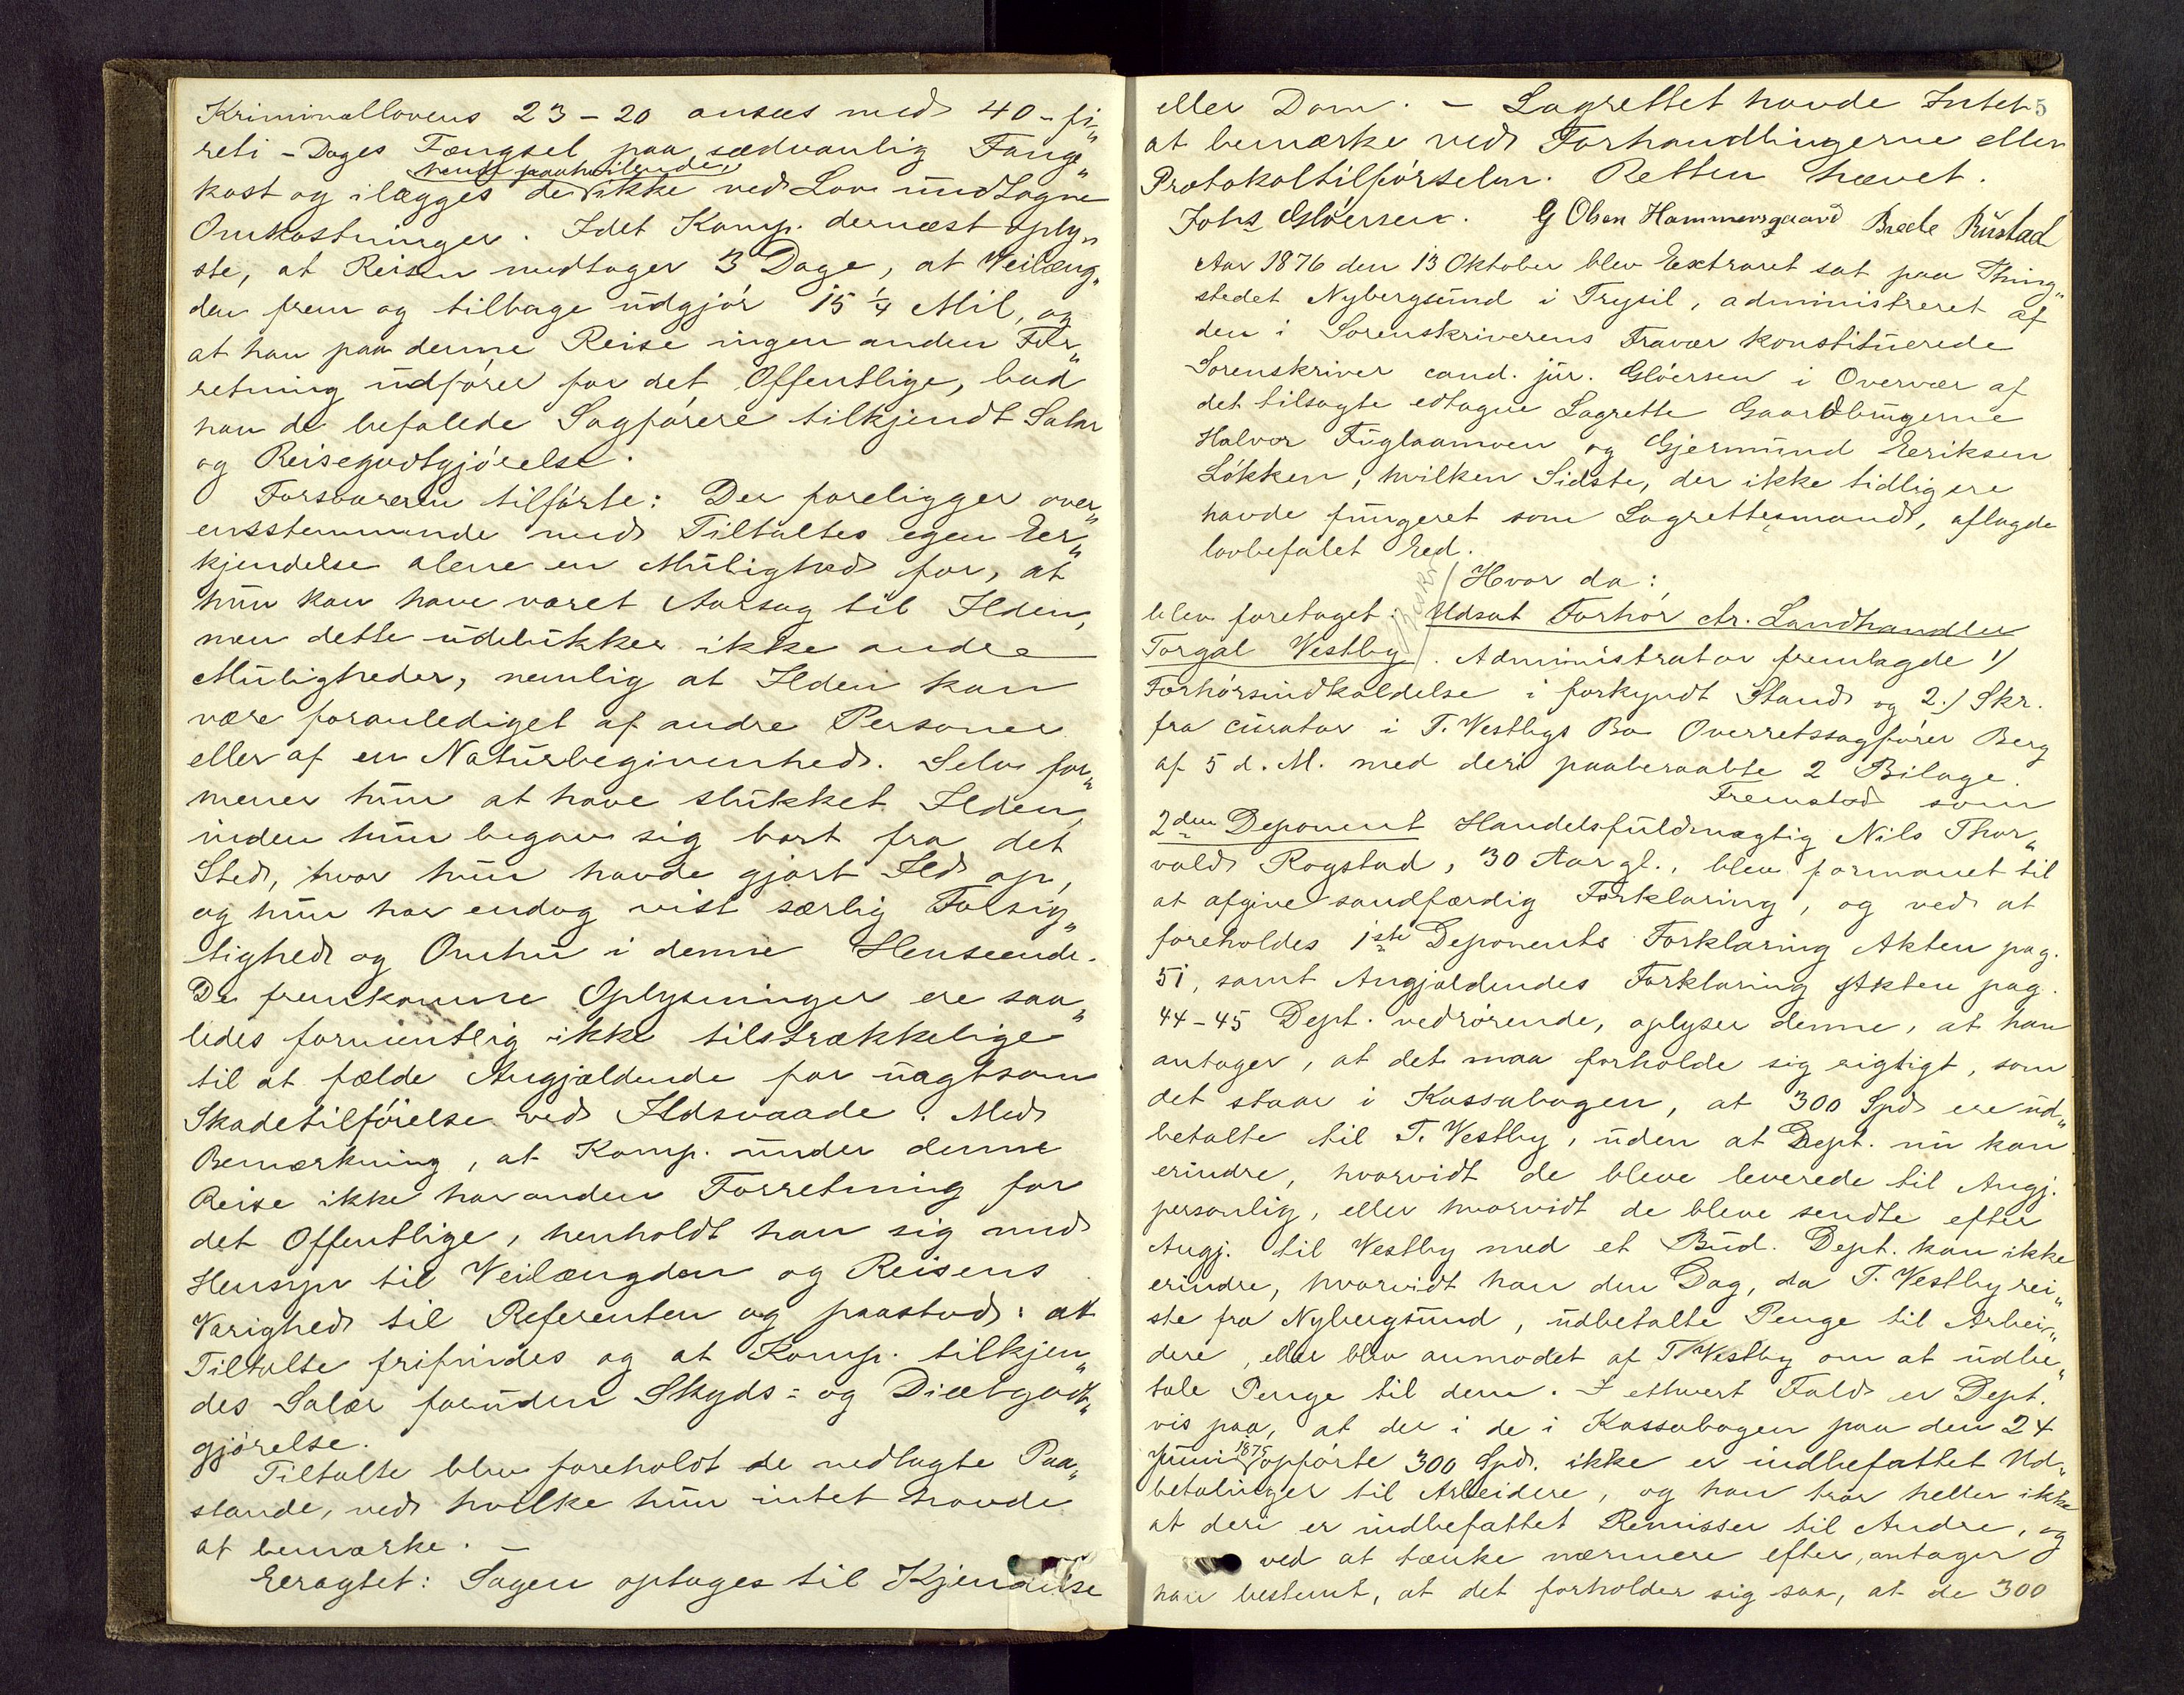 Kriminallovens 23-20 ansees med 40-fi„
reti-Dages Fængsel paa sædvanlig Fange„
kost og ilægges de ikke ved Lov undtagne
Omkostninger. Idet Komp. dernæst oply„
ste, at Reisen medtager 3 Dage, at Veilæng„
den frem og tilbage udgjør 15 ¼ Mil, og
at han paa denne Reise ingen anden For„
retning udfører for det Offentlige, bad
han de befalede Sagførere tilkjendt Salær
og Reisegodtgjørelse.
Forsvareren tilførte: Der foreligger over„
ensstemmende med Tiltaltes egen Er„
kjendelse alene en Mulighed for, at
hun kan have været Aarsag til Ilden,
men dette udelukker ikke andre
Muligheder, nemlig at Ilden kan
være foranlediget af andre Personer
eller af en Naturbegivenhed. Selv for„
mener hun at have slukket Ilden,
inden hun begav sig bort fra det
Sted, hvor hun havde gjort Ild op,
og hun har endog vist særlig Forsig„
tighed og Omhu i denne Henseende.
De fremkomne Oplysninger ere saa„
ledes formentlig ikke tilstrækkelige
til at fælde Angjældende for uagtsom
Skadetilføielse ved Ildsvaade. Med
Bemærkning, at Komp. under denne
Reise ikke har anden Forretning for
det Offentlige, henholdt han sig med
Hensyn til Veilængden og Reisens
Varighed til Referenten og paastod: at
Tiltalte frifindes og at Komp. tilkjen„
des Salær foruden Skyds- og Diætgodt„
gjørelse.
Tiltalte blev foreholdt de nedlagte Paa„
stande, ved hvilke hun intet havde
at bemærke. -
Eragtet: Sagen optages til Kjendelse
eller Dom. - Lagrettet havde Intet 5
at bemærke ved Forhandlingerne eller
Protokoltilførselen. Retten hævet.
Johs Gløersen. G Olsen Hammersgaard Brede Rustad
Aar 1876 den 13 Oktober blev Extraret sat paa Thing„
stedet Nybergsund i Trysil, administreret af
den i Sorenskriverens Fravær konstituerede
Sorenskriver cand. jur. Gløersen i Overvær af
det tilsagte edtagne Lagrette Gaardbrugerne
Halvor Fuglaamoen og Gjermund Eriksen
Løkken, hvilken Sidste, der ikke tidligere
havde fungeret som Lagrettesmand, aflagde
lovbefalet Ed.
Hvor da:
blev foretaget: Udsat Forhør ctr. Landhandler
Torgal Vestby. Administrator fremlagde 1/
Forhørsindkaldelse i forkyndt Stand og 2./ Skr.
fra curator i T. Vestbys Bo Overretssagfører Berg
af 5 d. M. med deri paaberaabte 2 Bilage.
Fremstod som
2den Deponent Handelsfuldmægtig Nils Thor„
vald Rogstad, 30 Aar gl., blev formanet til
at afgive sandfærdig Forklaring, og ved at
foreholdes 1ste Deponents Forklaring Akten pag.
51, samt Angjældendes Forklaring Akten pag.
44-45 Dept. vedrørende, oplyser denne, at han
antager, at det maa forholde sig rigtigt, som
det staar i Kassabogen, at 300 Spd ere ud„
betalte til T. Vestby, uden at Dept. nu kan
erindre, hvorvidt de bleve leverede til Angj.
personlig, eller hvorvidt de bleve sendte efter
Angj. til Vestby med et Bud. Dept. kan ikke
erindre, hvorvidt han den Dag, da T. Vestby rei„
ste fra Nybergsund, udbetalte Penge til Arbei„
dere, eller blev anmodet af T Vestby om at udbe„
tale Penge til dem. I ethvert Fald er Dept.
vis paa, at der i de i Kassabogen paa den 24
Juni 1875 opførte 300 Spd. ikke er indbefattet Ud„
betalinger til Arbeidere, og han tror heller ikke
at deri er indbefattet Remisser til Andre, og
ved at tænke nærmere efter, antager
han bestemt, at det forholder sig saa, at de 300